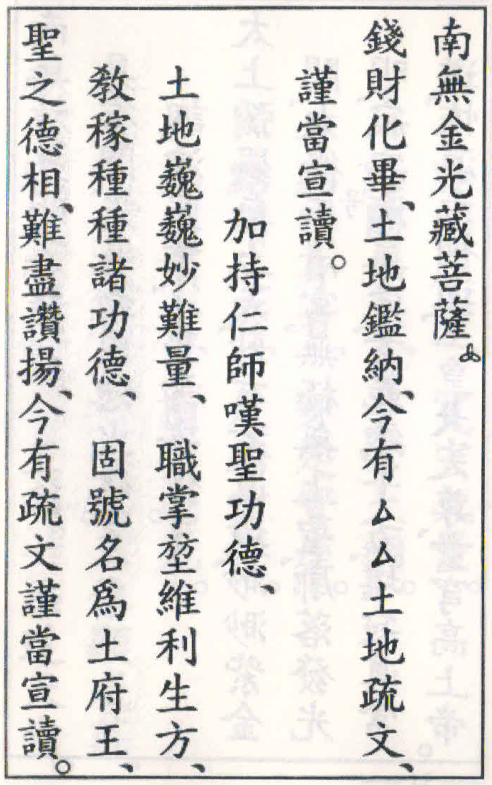 南無金光藏菩薩。
錢財化畢、土地鑑納、今有厶厶土地疏文、
謹當宣讀。
加持仁師嘆聖功德、
土地巍巍妙難量、職掌堃維利生方、
教稼種種諸功德、固號名為土府王、
聖之德相、難盡讚揚、今有疏文謹當宣讀。